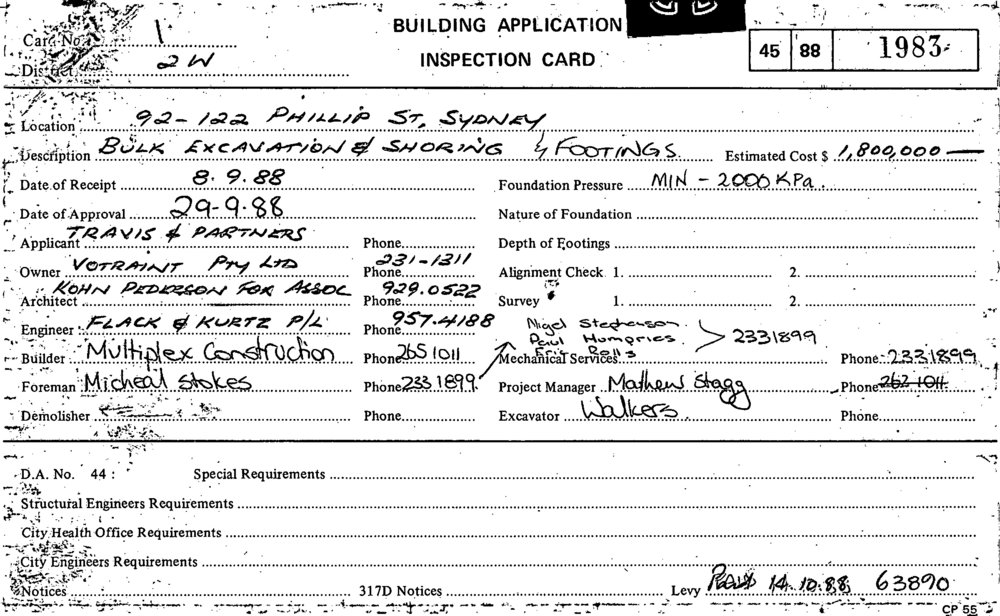 BUILDING APPLICATION
Card No. 1.
INSPECTION CARD
45 88 1983
District 2W
Location 92-122 PHILLIP ST, SYDNEY
Description BULK EXCAVATION & SHORING & FOOTINGS Estimated Cost $ 1,800,000
Date of Receipt 8.9.88 Foundation Pressure MIN - 2000 KPa
Date of Approval 29-9-88 Nature of Foundation
Applicant TRAVIS & PARTNERS Phone Depth of Footings
Owner VOTRAINT PTY LTD Phone 231-1311 Alignment Check 1. 2.
Architect KOHN PEDERSON FOX ASSOC Phone 929.0522 Survey 1. 2.
Engineer FLACK & KURTZ P/L Phone 957.4188 Nigel Stephenson
Paul Humpries 2331899
Builder Multiplex Construction Phone 265 1011 Mechanical Services Phone 2331899
Foreman Micheal Stokes Phone 233 1899 Project Manager Mathew Stagg Phone 262 1011
Demolisher Phone Excavator Walkers Phone
D.A. No. 44 : Special Requirements
Structural Engineers Requirements
City Health Office Requirements
City Engineers Requirements
Notices 317D Notices Levy Paid 14.10.88 63890
CP 55